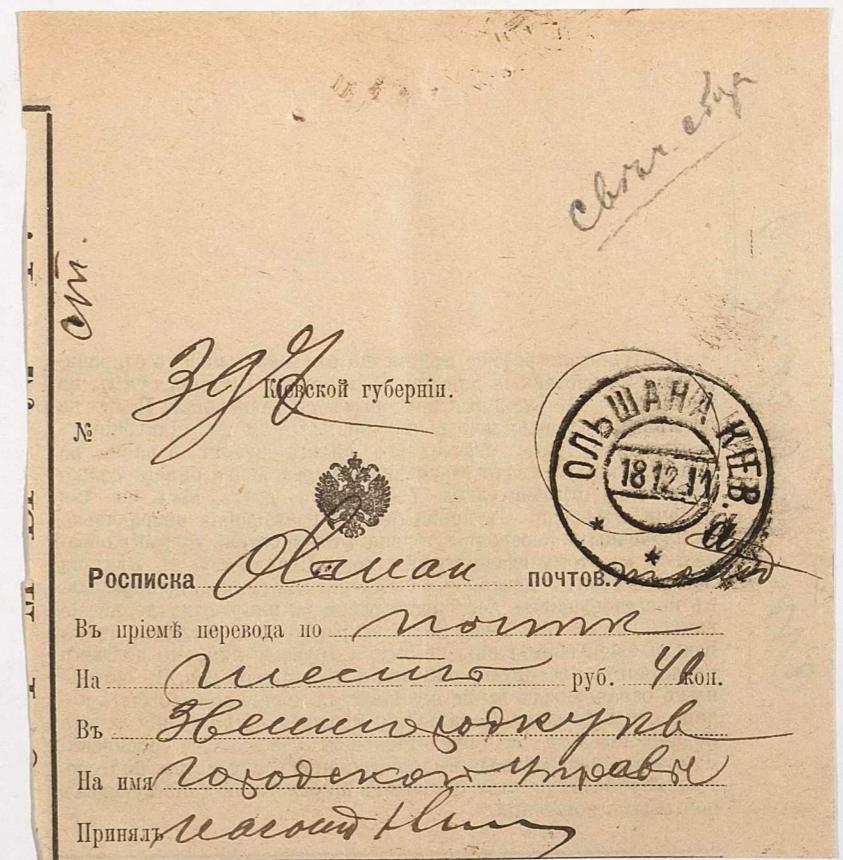 ст.
Кіевской губерніи.
№
ОЛЬШАНА КІЕВ.
18 12 11
а
Росписка Ольшан почтов.
Въ пріемѣ перевода по почтѣ
На шесть руб. 40 коп.
Въ Звенигородку Кв
На имя Городской Управы
Принялъ